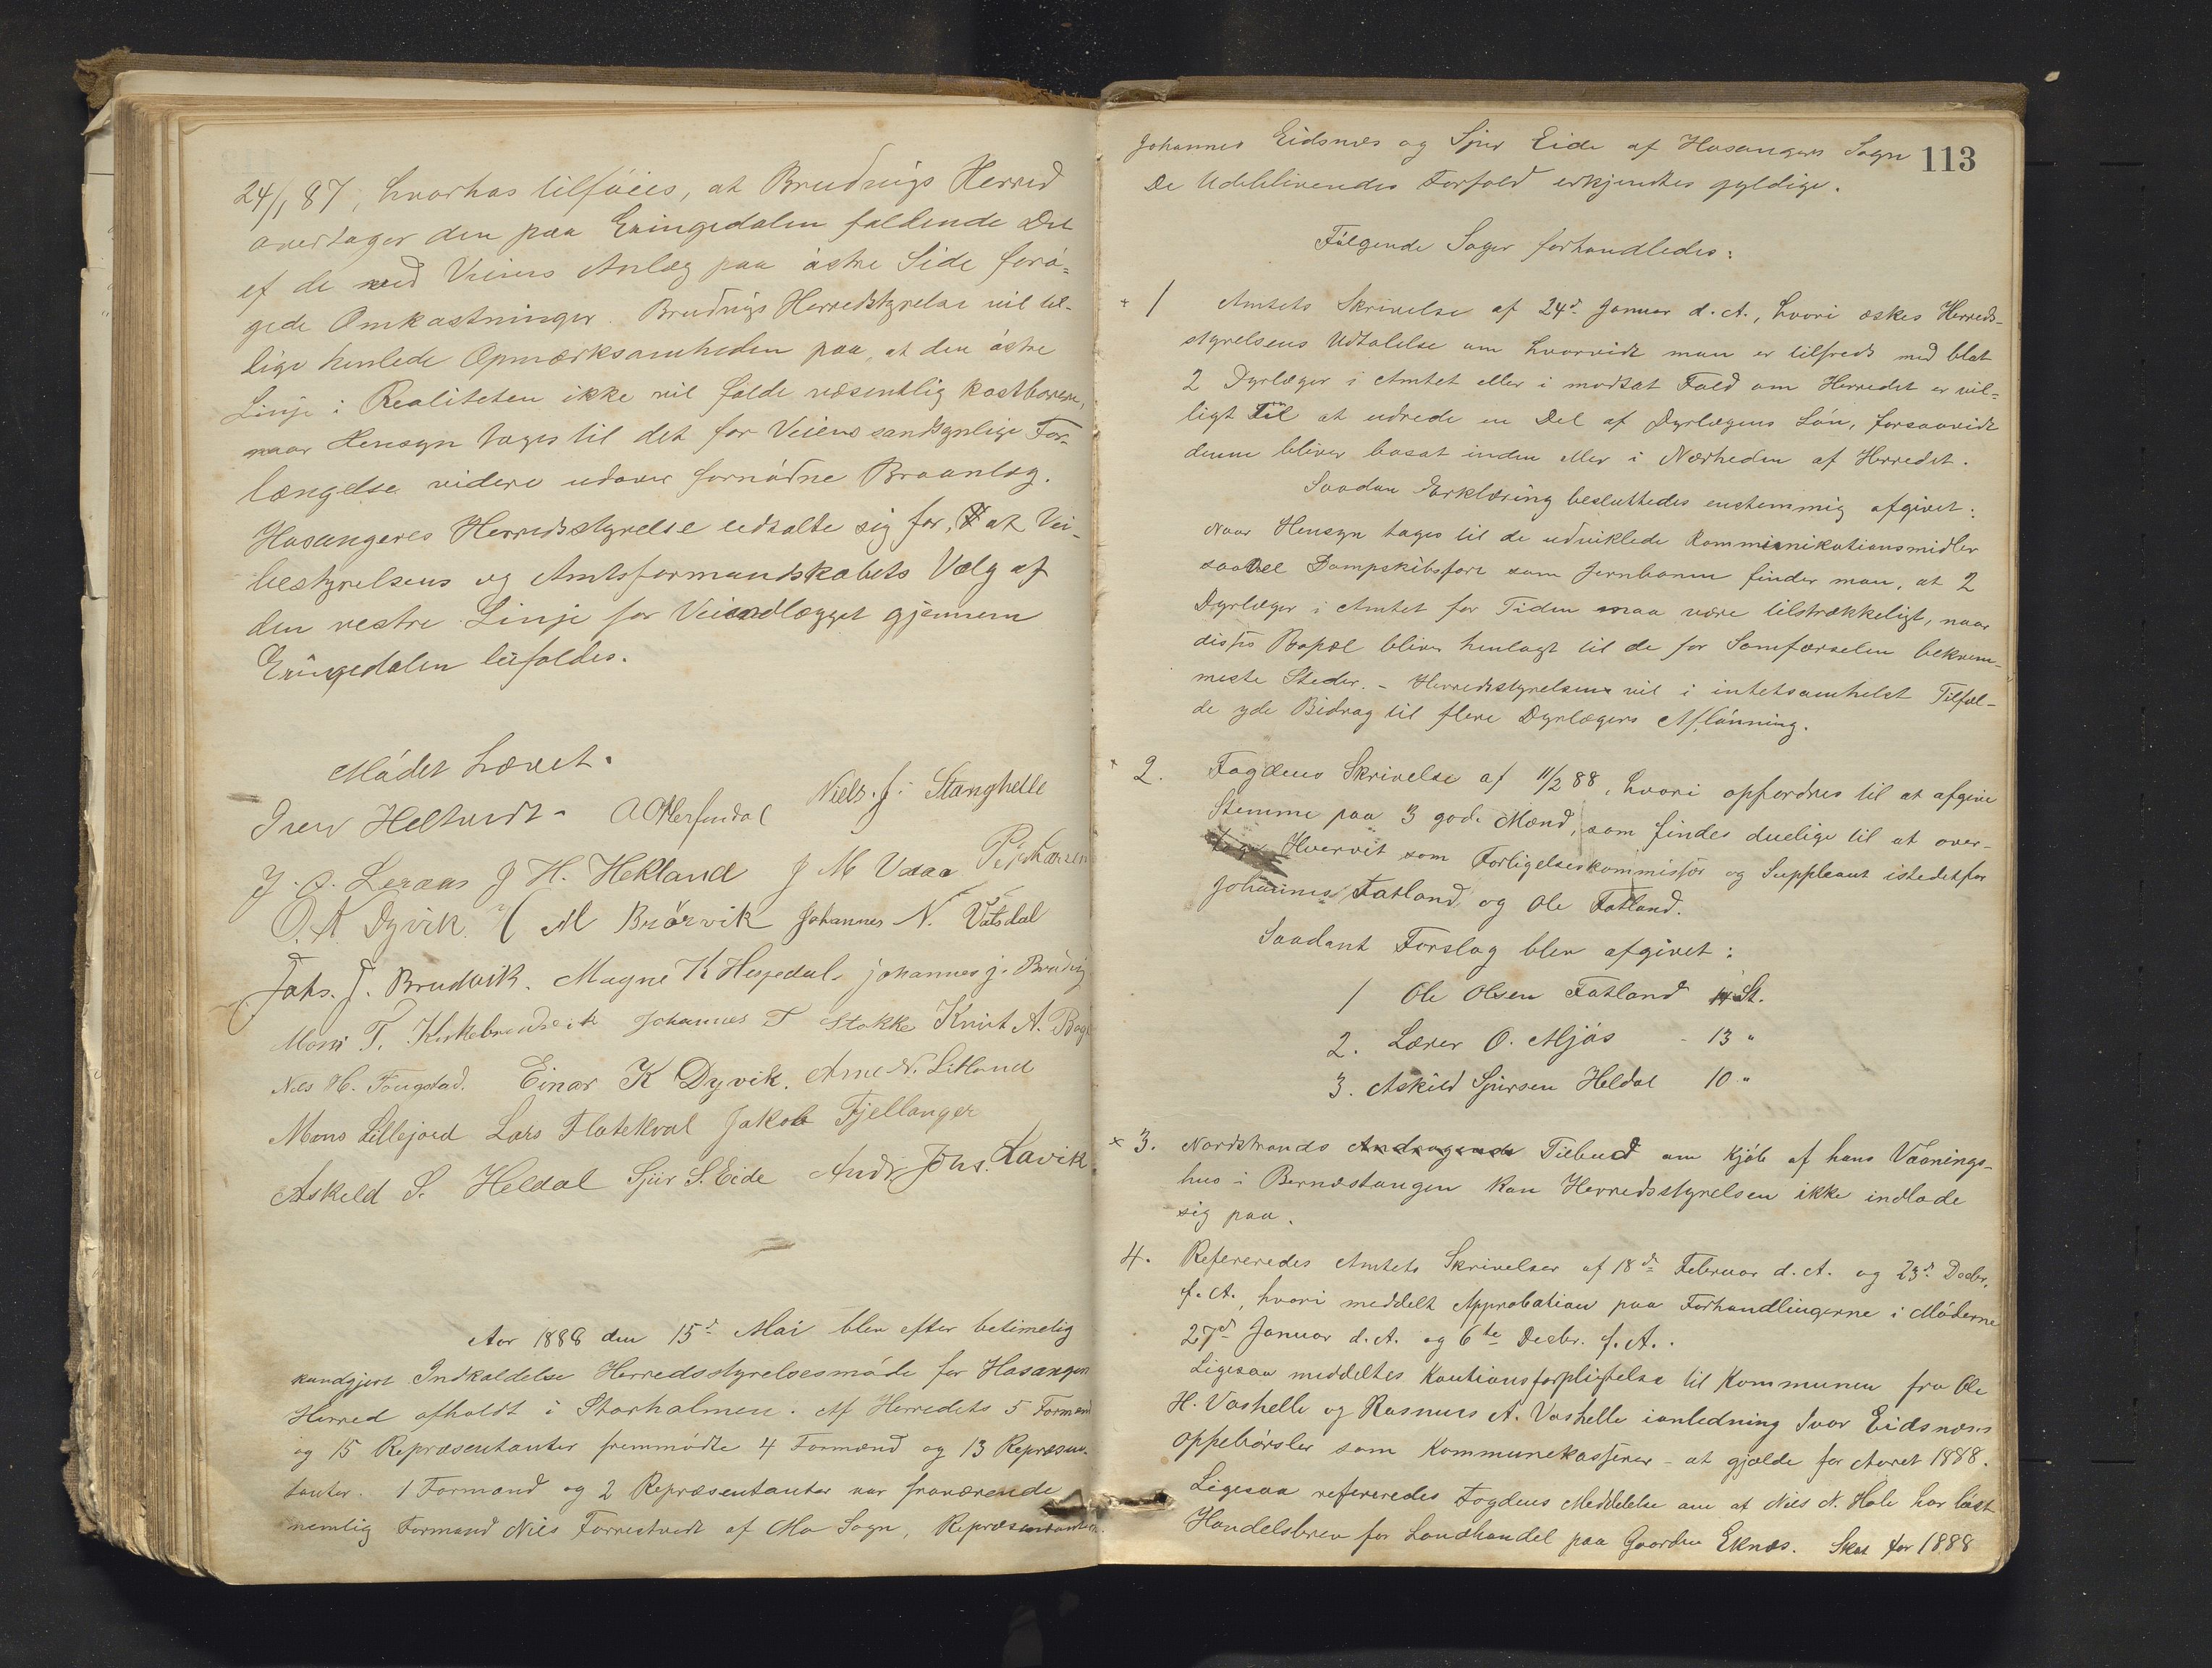 24/1 87, hvorhos tilføies, at Brudvigs Herred
overtager den paa Eningedalen faldende Del
af de ved Veiens Anlæg paa østre Side forø-
gede Omkostninger. Brudvigs Herredsstyrelse vil til-
lige henlede Opmærksomheden paa, at den østre
Linje i Realiteten ikke vil falde væsentlig kostbarere,
naar Hensyn tages til det for Veiens sandsynlige For-
længelse videre udover fornødne Broanlæg.
Hosangers Herredsstyrelse udtalte sig for, at Vei-
bestyrelsens og Amtsformandskabets Valg af
den vestre Linje for Veianlægget gjennem
Eningedalen bifaldes.
Mødet hævet.
Iver Heltvedt A Otterstadal Niels. J. Stanghelle
J. O. Leraas J H. Hekland J M Vaaa
O. A Dyvik M Bnørvik Johannes N. Vatsdal
Johs. J. Brudvik. Magne K Hesjedal. johannes j. Brudvig
Mons T. Kirkebrudvik Johannes T Stokke Knut A.
Nils H. Tougstad. Einar K Dyvik. Arne N. Litland
Mons Lillejord Lars Flatekval Jakob Fjellanger
Askeld S. Heldal Sjur S. Eide Andr. Johs. Lavik
Aar 1888 den 15d Mai blev efter betimelig
kundgjort Indkaldelse Herredsstyrelsesmøde for Hosangers
Herred afholdt i Storholmen. Af Herredets 5 Formænd
og 15 Repræsentanter fremmødte 4 Formænd og 13 Repræsen-
tanter. 1 Formand og 2 Repræsentanter var fraværende
nemlig Formand Nils Forrestvedt af Mo Sogn, Repræsentanter
113
Johannes Eidsnes og Sjur Eide af Hosangers Sogn
De Udeblivendes Forfald erkjendtes gyldige.
Følgende Sager forhandledes:
+ 1 Amtets Skrivelse af 24d Januar d. A., hvori æskes Herreds-
styrelsens Udtalelse om hvorvidt man er tilfreds med blot
2 Dyrlæger i Amtet eller i modsat Fald om Herredet er vil-
ligt til at udrede en Del af Dyrlægens Løn, forsaavidt
denne bliver bosat inden eller i Nærheden af Herredet.
Saadan Erklæring besluttedes enstemmig afgivet:
Naar Hensyn tages til de udviklede Kommunikationsmidler
saavel Dampskibsfart som Jernbanen finder man, at 2
Dyrlæger i Amtet for Tiden maa være tilstrækkeligt, naar
disses Bopæl bliver henlagt til de for Samfærselen bekvem-
meste Steder. – Herredsstyrelsen vil i intetsomhelst Tilfæl-
de yde Bidrag til flere Dyrlægers Aflønning.
+ 2. Fogdens Skrivelse af 11/2 88, hvori opfordres til at afgive
Stemme paa 3 gode Mænd, som findes duelige til at over-
tage Hvervet som Forligelseskommissær og Suppleant istedetfor
Johannes Fatland og Ole Fatland.
Saadant Forslag blev afgivet:
1 Ole Olsen Fatland 14 St.
2. Lærer O. Mjøs - 13 "
3. Askild Sjursen Heldal 10 "
x 3. Nordstrands Andragende Tilbud om Kjøb af hans Vaanings-
hus i Bernestangen kan Herredsstyrelsen ikke indlade
sig paa.
4. Refereredes Amtets Skrivelser af 18d Februar d. A. og 23d Decbr.
f. A., hvori meddelt Approbation paa Forhandlingerne i Møderne
27d Januar d. A. og 6te Decbr. f. A..
Ligesaa meddeltes Kautionsforpligtelse til Kommunen fra Ole
H. Vashelle og Rasmus A. Vashelle ianledning Ivar Eidsnæs's
Oppebørsler som Kommunekasserer – at gjælde for Aaret 1888.
Ligesaa refereredes Fogdens Meddelelse om at Nils N. Hole har løst
Handelsbrev for Landhandel paa Gaarden Eknæs. Skat for 1888